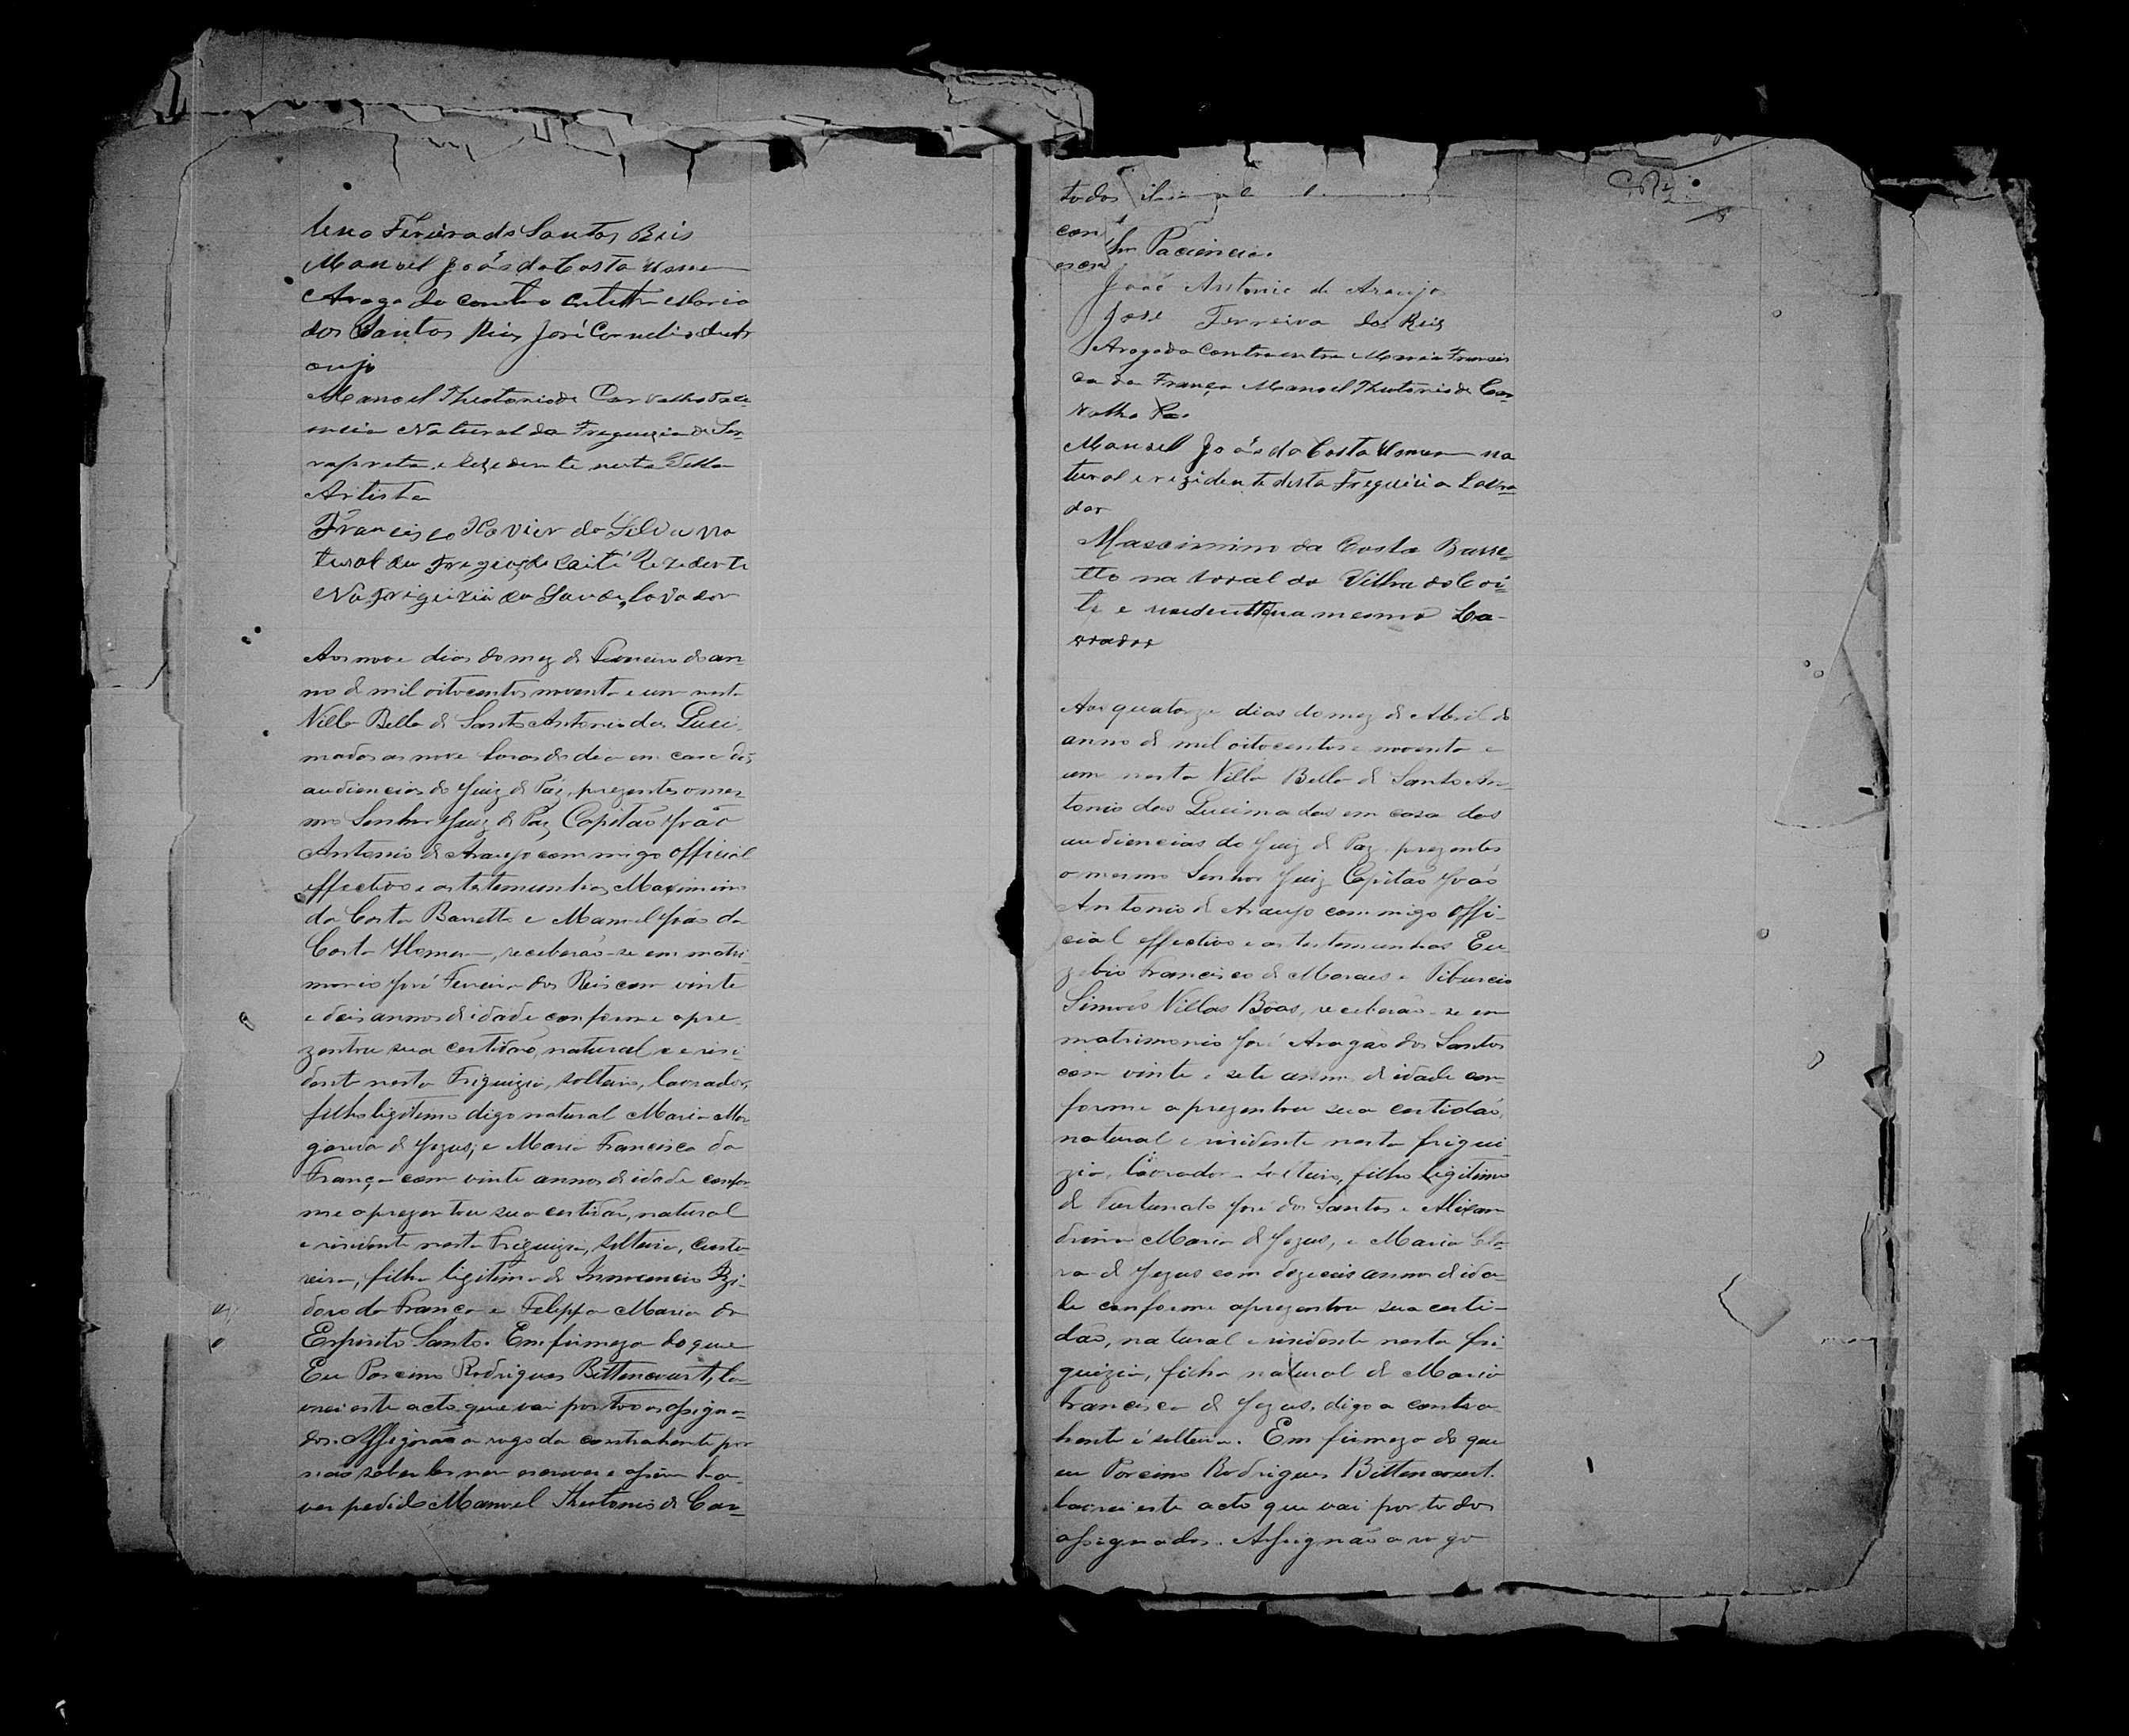 Ferreira dos Santos Reis
Manoel João da Costa Homem
Arogo da contra entetr Maria
dos Santos Reis José Cornelio de Ar
aujo
Manoel Theotonio de Carvalho Paci
encia Natural da Freguezia de Ser
rapreta, e Rezedente nesta Villa
Artista
Francisco Xavier da Silva na
tural da Freguezia de Coité Rezedente
Na freguezia da Saude, lavador
Aos nove dias do mez de Fevereiro do an-
no de mil oitocentos noventa e um nesta
Villa Bella de Santo Antonio das Quei-
madas as nove horas do dia em casa das
audiencias do Juiz de Paz, prezentes o mes-
mo Senhor Juiz de Paz Capitão João
Antonio de Araujo commigo official
effectivo e as testemunhas Maximino
da Costa Barretto e Manoel João da
Costa Homem, receberão-se em matri-
monio José Ferreira dos Reis com vinte
e dois annos de idade conforme apre-
zentou sua certidão, natural e rezi-
dente nesta Friguizia, solteiro, lavrador,
filho ligitimo digo natural Maria Mar
garida de Jezus; e Maria Francisca da
França com vinte annos de idade confor-
me aprezentou sua certidão, natural
e risidente nesta Friguizia, solteira, costu
reira, filha ligitima de Innocencio Izi-
doro da Franca e Felippa Maria do
Espirito Santo. Em firmeza do que
Eu Porcino Rodrigues Bittencourt, la-
vrei este acto que vai por todos assigna-
dos. Assignão a rogo da contrahente por
não saber ler nem escrever e assim ha-
ver pedido Manoel Theotonio de Car-
todos
con
escr
Paciencia.
João Antonio de Araujo
José Ferreira dos Reis
Arogo da Contraentra Maria Francis
ca da França Manoel Theotonio de Car
valho Pa.
Manoel João da Costa Homem na
tural e rezidente desta Freguizia Lavra
dor
Mascimino da Costa Barre-
tto natoral da Villa do Coi-
te e residente na mesma La-
vrador
Aos quatorze dias do mez de Abril do
anno de mil oitocentos e noventa e
um nesta Villa Bella de Santo An-
tonio das Queimadas em casa das
audiencias do Juiz de Paz prezentes
o mesmo Senhor Juiz Capitão João
Antonio de Araujo commigo offi-
cial effectivo e as testemunhas Eu-
zebio Francisco de Moraes e Tiburcio
Simões Villas Bôas, receberão-se em
matrimonio José Aragão dos Santos
com vinte e sete annos de idade con-
forme aprezentou sua certidão,
natural e risidente nesta frigui-
zia, lavrador solteiro, filho legitimo
de Furtunato José dos Santos e Alixan
drina Maria de Jezus, e Maria Cla-
ra de Jezus com dezeceis annos de ida-
de conforme aprezentou sua certi-
dão, natural e risidente nesta fri-
guizia, filha natural de Maria
Francisca de Jezus, digo a contra-
hente é solteira. Em firmeza do que
eu Porcino Rodrigues Bittencourt.
lavrei este acto que vai por todos
assignados. Assignão a rogo